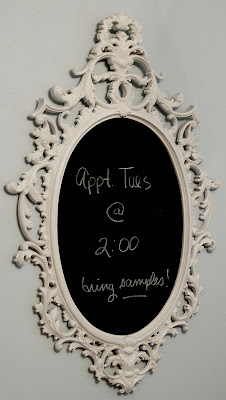 Appt. Tues
@
2:00
bring samples!